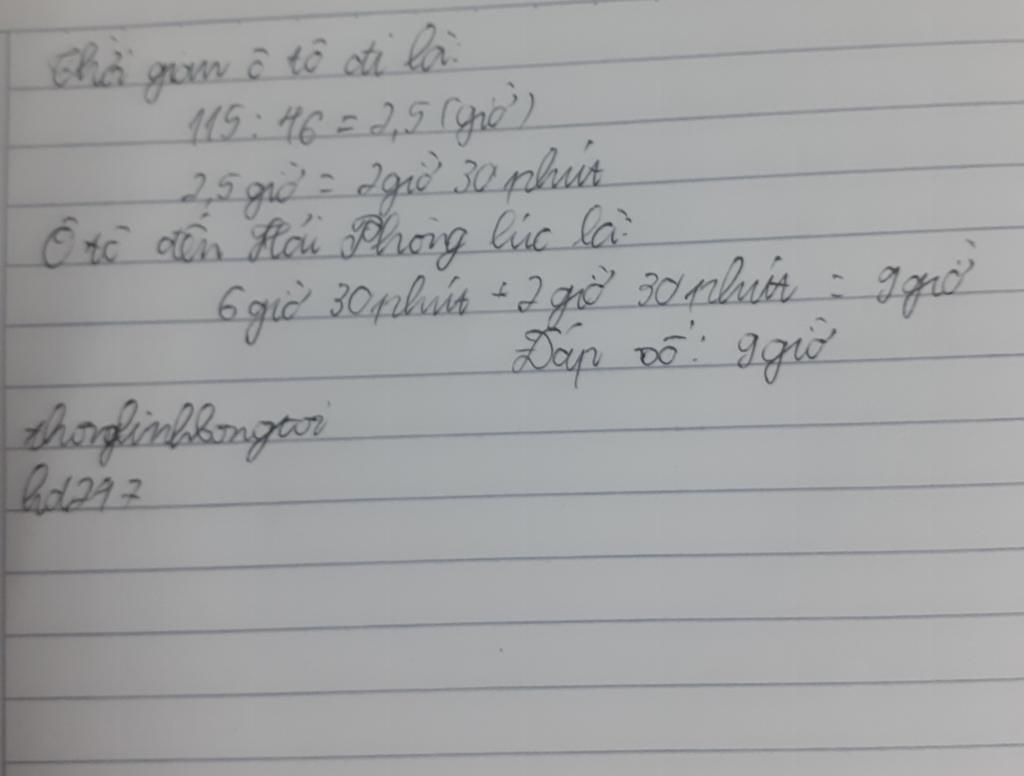 Thời gian ô tô đi là:
115 : 46 = 2,5 (giờ)
2,5 giờ = 2 giờ 30 phút
Ô tô đến Hải Phòng lúc là:
6 giờ 30 phút + 2 giờ 30 phút = 9 giờ
Đáp số: 9 giờ
hd297